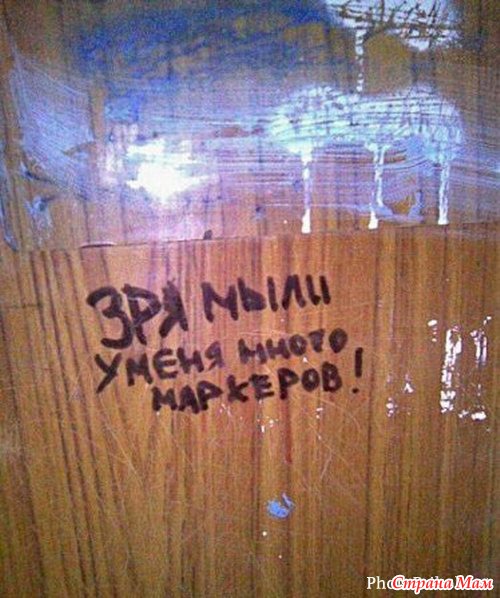 ЗРЯ МЫЛИ
У МЕНЯ МНОГО
МАРКЕРОВ!
Pho
Страна Мам